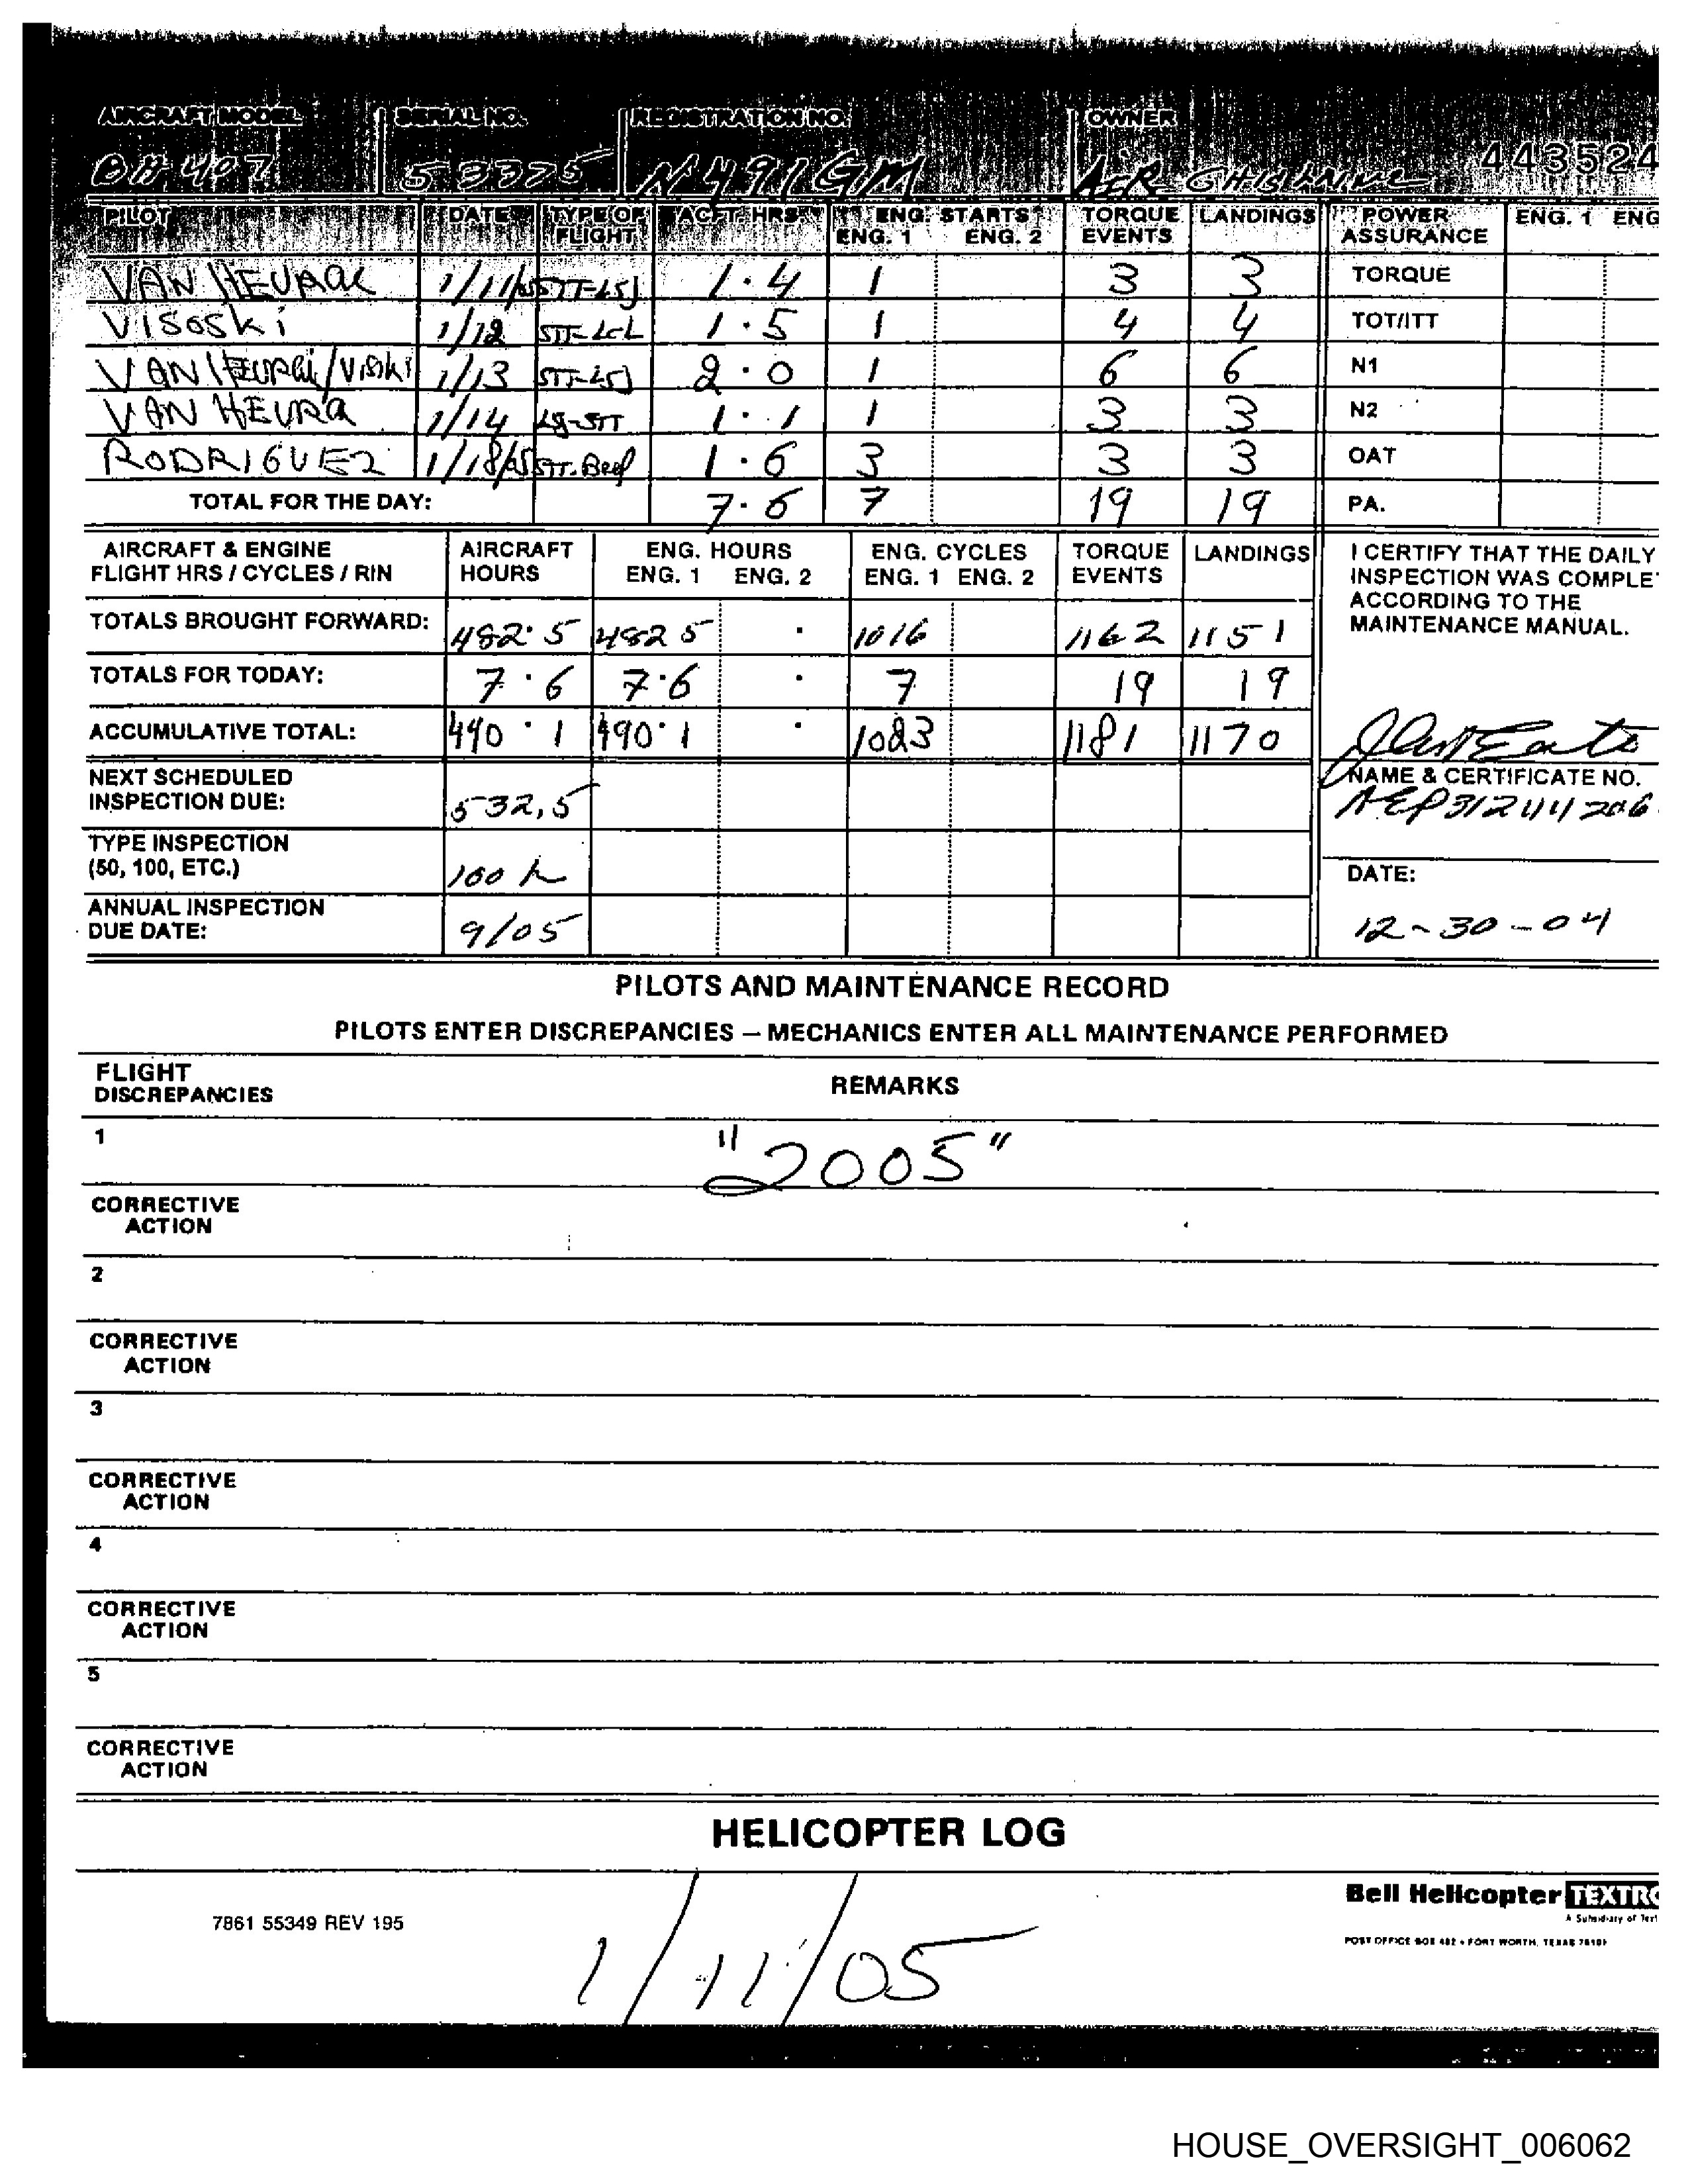 AIRCRAFT MODEL SERIAL NO. REGISTRATION NO. OWNER
BH 407 53375 N491GM AIR GHISLAINE 443524
PILOT DATE TYPE OF FLIGHT ACFT HRS ENG. STARTS ENG. 1 ENG. 2 TORQUE EVENTS LANDINGS POWER ASSURANCE ENG. 1 ENG
VAN 1/11/05 STT-LSJ 1.4 1 3 3 TORQUE
VISOSKI 1/12 STT-LCL 1.5 1 4 4 TOT/ITT
VAN 1/13 STT-LSJ 2.0 1 6 6 N1
VAN HEURA 1/14 LSJ-STT 1.1 1 3 3 N2
RODRIGUEZ 1/18/05 STT-Beef 1.6 3 3 3 OAT
TOTAL FOR THE DAY: 7.6 7 19 19 PA.
AIRCRAFT & ENGINE FLIGHT HRS / CYCLES / RIN AIRCRAFT HOURS ENG. HOURS ENG. 1 ENG. 2 ENG. CYCLES ENG. 1 ENG. 2 TORQUE EVENTS LANDINGS
I CERTIFY THAT THE DAILY
INSPECTION WAS COMPLE
ACCORDING TO THE
MAINTENANCE MANUAL.
TOTALS BROUGHT FORWARD: 482.5 482 5 . 1016 1162 1151
TOTALS FOR TODAY: 7.6 7.6 . 7 19 19
ACCUMULATIVE TOTAL: 490.1 490.1 . 1023 1181 1170
NEXT SCHEDULED
INSPECTION DUE: 532,5
NAME & CERTIFICATE NO.
TYPE INSPECTION
(50, 100, ETC.) 100 h
DATE:
ANNUAL INSPECTION
DUE DATE: 9/05
12-30-04
PILOTS AND MAINTENANCE RECORD
PILOTS ENTER DISCREPANCIES – MECHANICS ENTER ALL MAINTENANCE PERFORMED
FLIGHT
DISCREPANCIES REMARKS
1 "2005"
CORRECTIVE
ACTION
2
CORRECTIVE
ACTION
3
CORRECTIVE
ACTION
4
CORRECTIVE
ACTION
5
CORRECTIVE
ACTION
HELICOPTER LOG
Bell Helicopter TEXTRO
A Subsidiary of Text
7861 55349 REV 195
POST OFFICE BOX 482 • FORT WORTH, TEXAS 76101
1/11/05
HOUSE_OVERSIGHT_006062